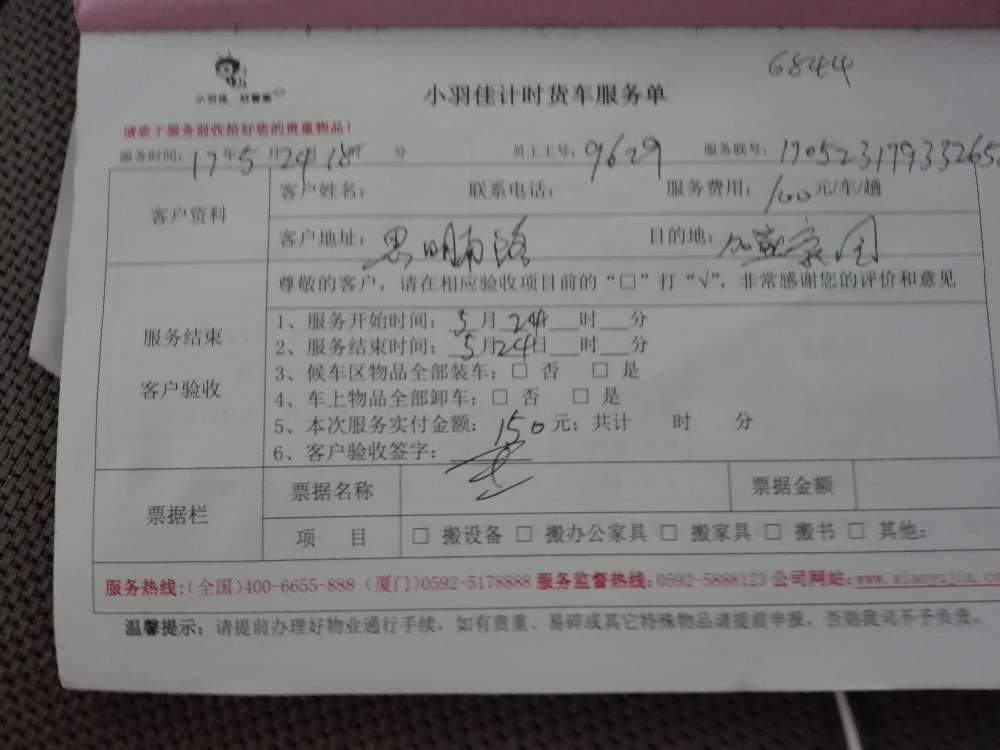 6844
小羽佳
小羽佳计时货车服务单
请您于服务前收拾好您的贵重物品！
服务时间：17年5月24日18时 分 员工工号：9629 服务联号：17052317933265
客户资料
客户姓名： 联系电话： 服务费用：100元/车/趟
客户地址：思明南路 目的地：
服务结束
客户验收
尊敬的客户，请在相应验收项目前的“□”打“√”，非常感谢您的评价和意见
1、服务开始时间：5月24日___时___分
2、服务结束时间：5月24日___时___分
3、候车区物品全部装车：□ 否 □ 是
4、车上物品全部卸车：□ 否 □ 是
5、本次服务实付金额：150元；共计 时 分
6、客户验收签字：
票据栏
票据名称 票据金额
项 目 □ 搬设备 □ 搬办公家具 □ 搬家具 □ 搬书 □ 其他：
服务热线：(全国)400-6655-888 (厦门)0592-5178888 服务监督热线：0592-5888123 公司网站：www.xiaoyujia.c
温馨提示：请提前办理好物业通行手续，如有贵重、易碎或其它特殊物品请提前申报，否则我司不予负责。